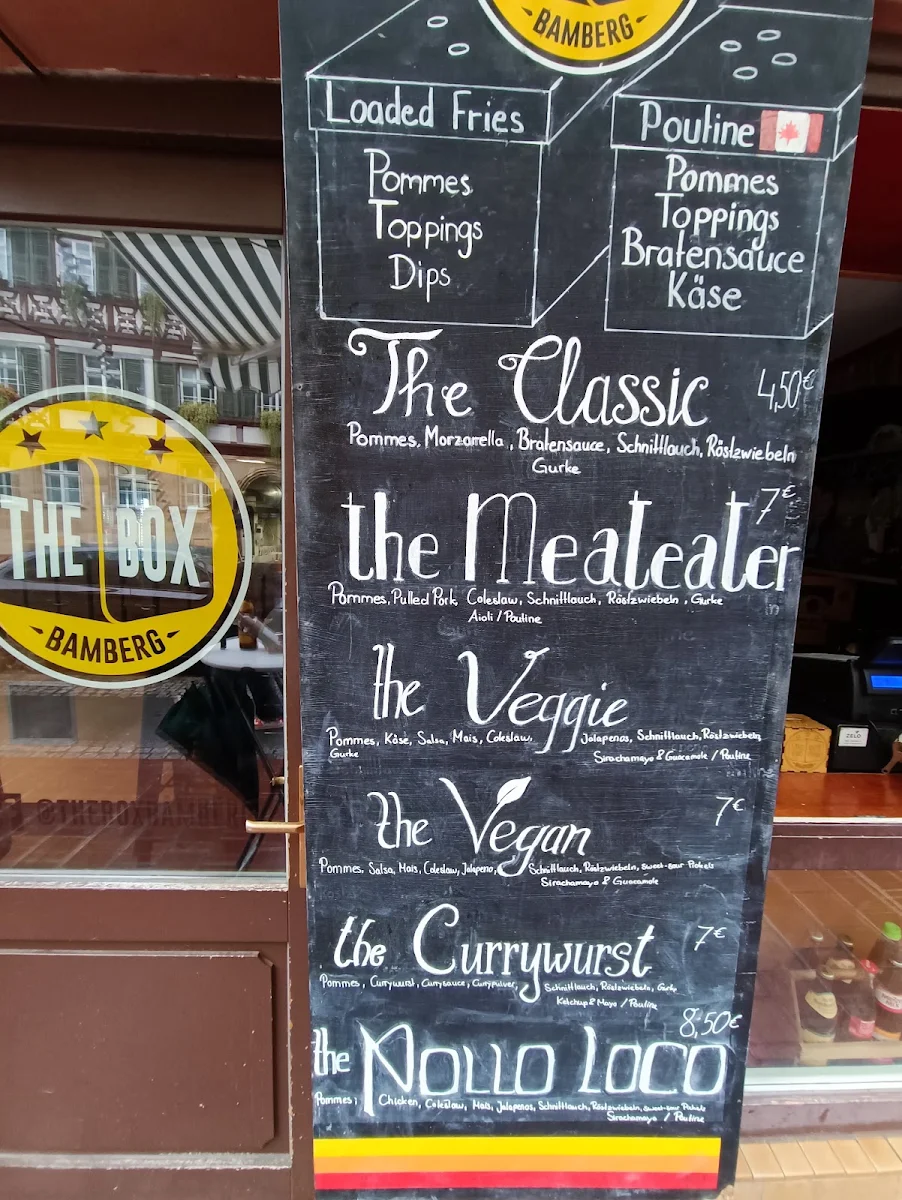 BAMBERG
Loaded Fries
Pommes
Toppings
Dips
Poutine
Pommes
Toppings
Bratensauce
Käse
The Classic 4,50€
Pommes, Morzarella, Bratensauce, Schnittlauch, Röstzwiebeln
Gurke
the Meateater 7€
Pommes, Pulled Pork, Coleslaw, Schnittlauch, Röstzwiebeln, Gurke
Aioli / Poutine
the Veggie
Pommes, Käse, Salsa, Mais, Coleslaw, Jalapenos, Schnittlauch, Röstzwiebeln
Gurke
Sirachamayo & Guacamole / Poutine
the Vegan 7€
Pommes, Salsa, Mais, Coleslaw, Jalapeno, Schnittlauch, Röstzwiebeln, sweet-sour Pickels
Sirachamayo & Guacamole
the Currywurst 7€
Pommes, Currywurst, Currysauce, Currypulver, Schnittlauch, Röstzwiebeln, Gurke
Ketchup & Mayo / Poutine
8,50€
the Pollo Loco
Pommes, Chicken, Coleslaw, Mais, Jalapenos, Schnittlauch, Röstzwiebeln, sweet-sour Pickels
Sirachamayo / Poutine
THE BOX
BAMBERG
@THEBOXBAMBERG